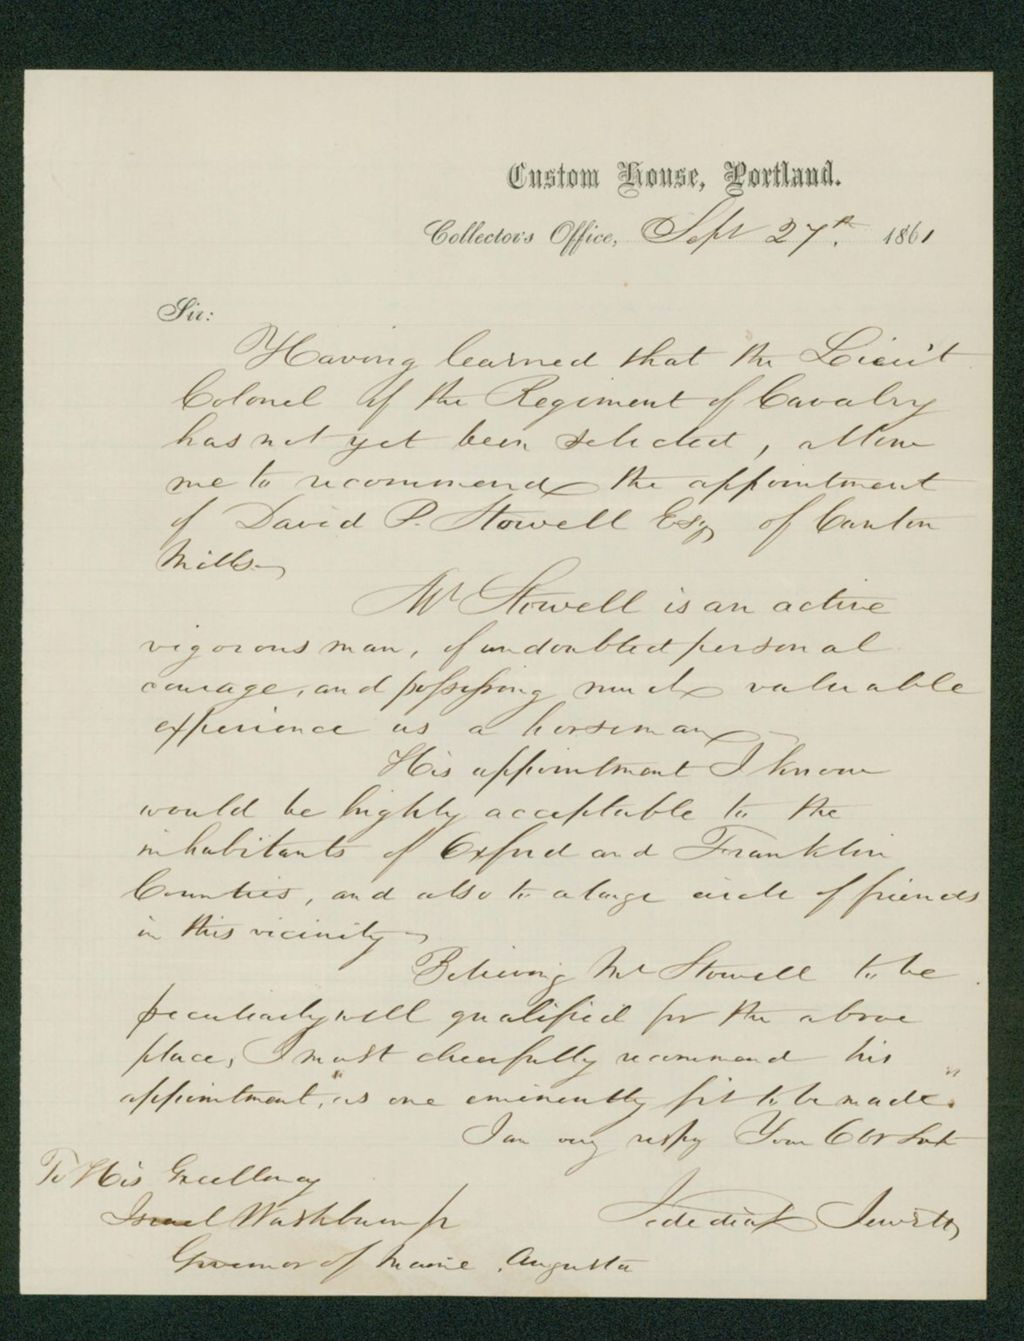 Custom House, Portland.
Collector's Office, Sept 27th. 1861
Sir:
Having learned that the Lieut
Colonel of the Regiment of Cavalry
has not yet been selected, allow
me to recommend the appointment
of David P. Stowell Esq of Canton
Mills.
Mr Stowell is an active
vigorous man, of undoubted personal
courage, and possessing much valuable
experience as a horseman.
His appointment I know
would be highly acceptable to the
inhabitants of Oxford and Franklin
Counties, and also to a large circle of friends
in this vicinity.
Believing Mr Stowell to be
peculiarly well qualified for the above
place, I most cheerfully recommend his
appointment, "as one eminently fit to be made".
I am very respy Your Obt Svt
To His Excellency
Israel Washburn Jr
Jedediah Jewett
Governor of Maine, Augusta